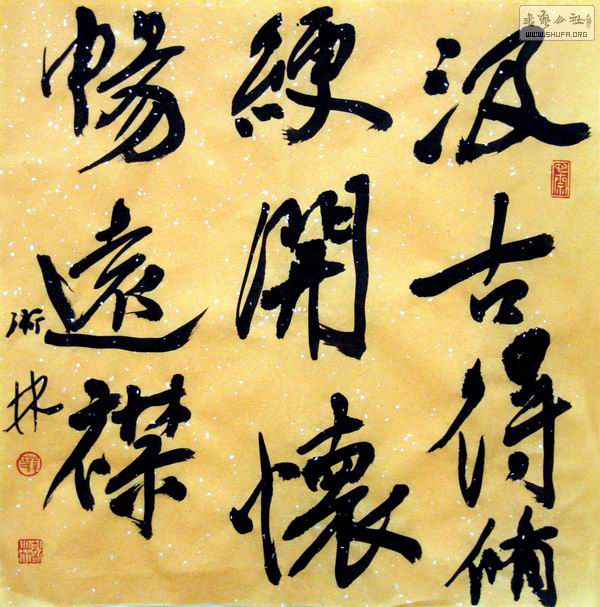 汲古得脩
綆開懷
暢遠襟
林
書藝公社
WWW.SHUFA.ORG